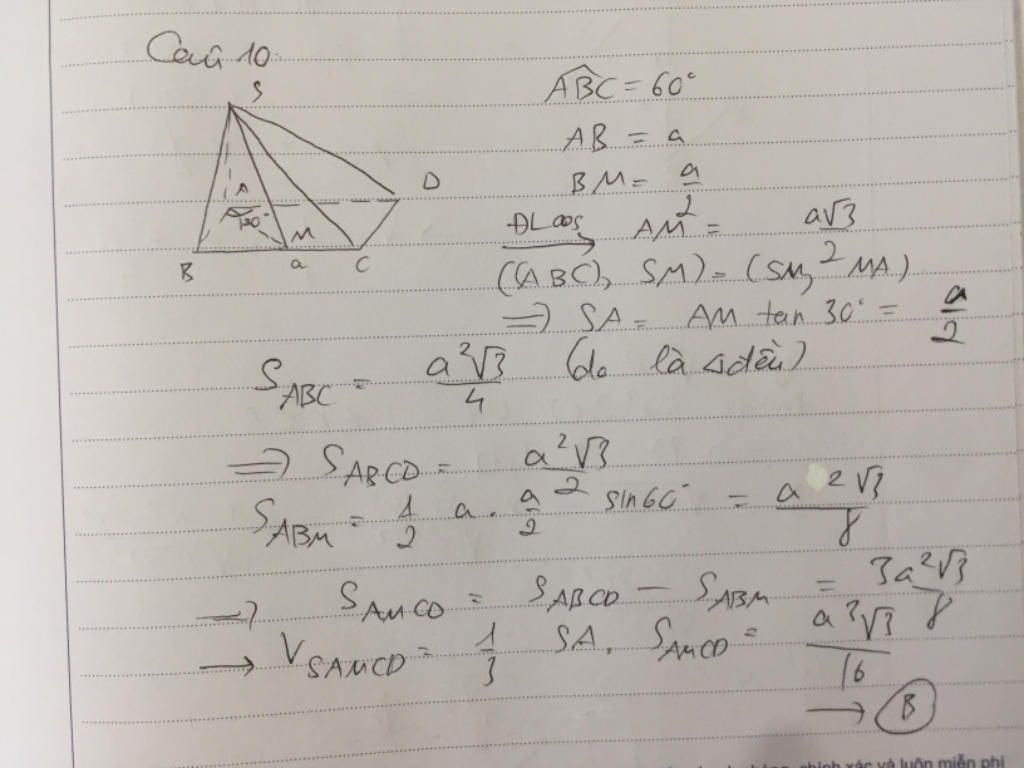 Câu 10
S
A
D
120°
M
B
a
C
ABC = 60°
AB = a
BM = a/2
ĐL cos → AM = a√3/2
((ABC), SM) = (SM, MA)
=> SA = AM tan 30° = a/2
S_ABC = a²√3/4 (do là △đều)
=> S_ABCD = a²√3/2
S_ABM = 1/2 a . a/2 sin60° = a²√3/8
=> S_AMCD = S_ABCD - S_ABM = 3a²√3/8
→ V_SAMCD = 1/3 SA. S_AMCD = a³√3/16
→ B
chính xác và luôn miễn phí